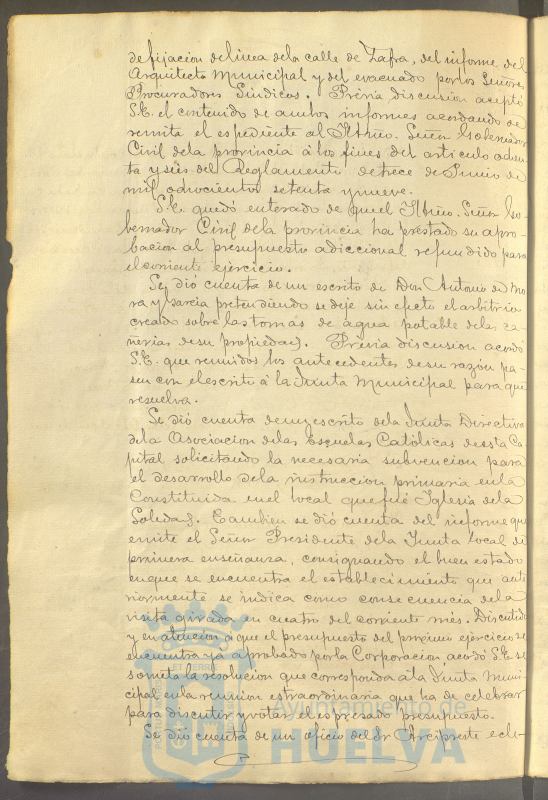 de fijacion de linea de la calle de Zafra, del informe del
Arquitecto Municipal y del evacuado por los Señores
Procuradores Sindicos. Prévia discusion aceptó
S.E. el contenido de ambos informes acordando se
remita el espediente al Iltmo. Señor Gobernador
Civil de la provincia á los fines del articulo
y seis del Reglamento de trece de Junio de
mil ochocientos setenta y nueve.
S.E. quedó enterado de que el Iltmo. Señor Go-
bernador Civil de la provincia ha prestado su apro-
bacion al presupuesto adiccional refundido para
el corriente ejercicio.
Se dió cuenta de un escrito de Don Antonio de Mo-
ra y Garcia pretendiendo se deje sin efecto el arbitrio
creado sobre las tomas de agua potable de las ca-
ñerias de su propiedad. Prévia discusion acordó
S.E. que reunidos los antecedentes de su razón pa-
sen con el escrito á la Junta Municipal para que
resuelva.
Se dió cuenta de un escrito de la Junta Directiva
de la Asociacion de las Escuelas Católicas de esta Ca-
pital solicitando la necesaria subvencion para
el desarrollo de la instruccion primaria en la
Constituida en el local que fué Iglesia de la
Soledad. Tambien se dió cuenta del informe que
emite el Señor Presidente de la Junta local de
primera enseñanza, consignando el buen estado
en que se encuentra el establecimiento que ante-
riormente se indica como consecuencia de la
visita girada en cuatro del corriente més. Discutido
y en atencion á que el presupuesto del próximo ejercicio se
encuentra ya aprobado por la Corporacion acordó S.E. se
someta la resolucion que corresponda á la Junta Muni-
cipal en la reunion estraordinaria que ha de celebrar
para discutir y votar el espresado presupuesto.
Se dió cuenta de un oficio del Sr Arcipreste ecle-
Ayuntamiento de
HUELVA